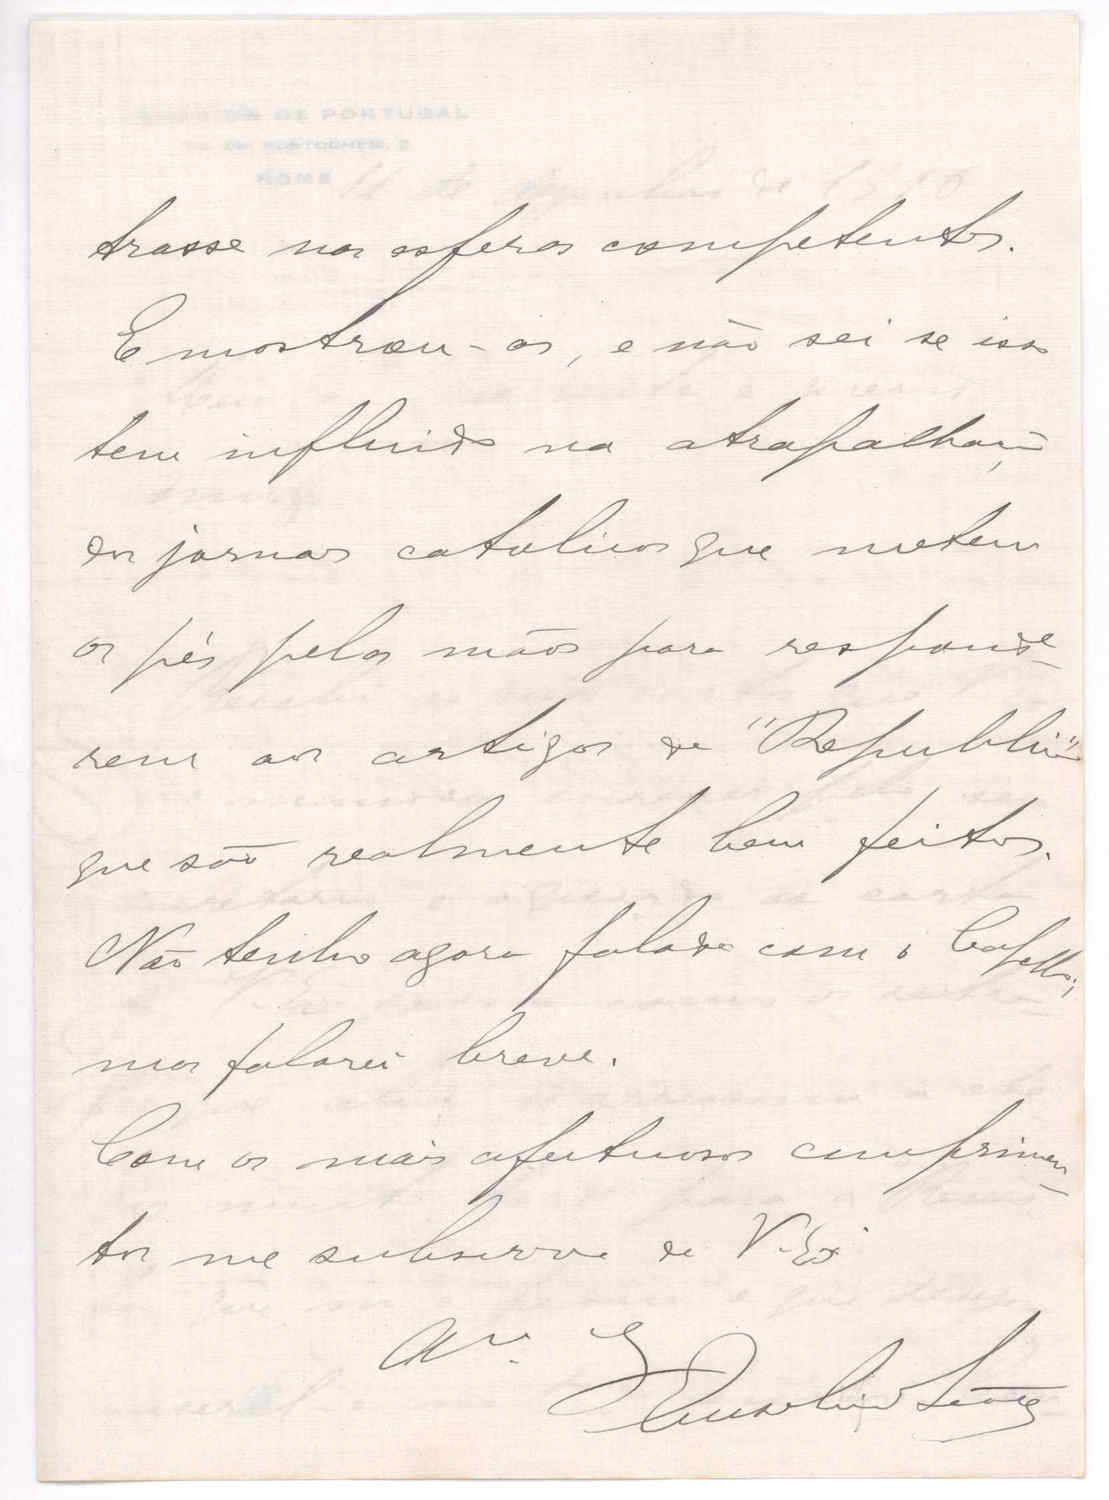 trasse nas esferas competentes.
E mostrou-os, e não sei se isso
tem influido na atrapalhação
dos jornais catolicos que metem
os pés pelas mãos para responde-
rem aos artigos da "Republica"
que são realmente bem feitos.
Não tenho agora falado com o Capello;
mas falarei breve.
Com os mais afectuosos cumprimen-
tos me subscrevo de V. Exª